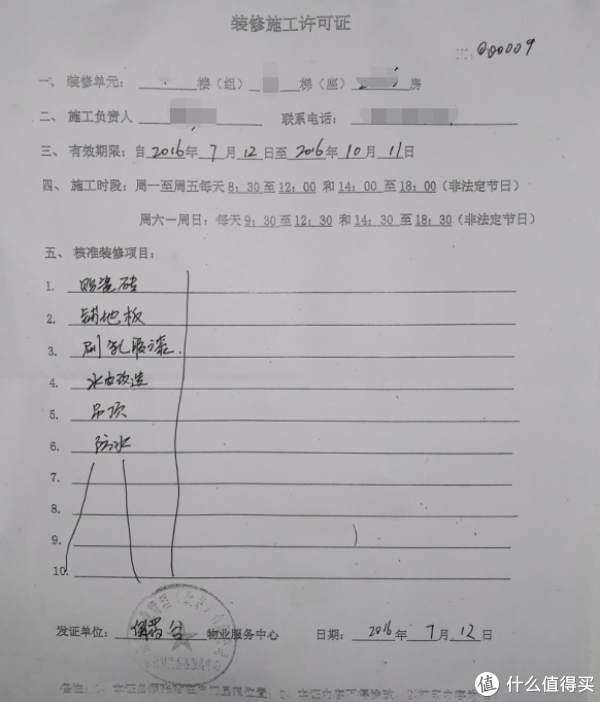 装修施工许可证
№：000009
一、装修单元：楼（组）梯（座）房
二、施工负责人 联系电话：
三、有效期限：自2016年7月12日至2016年10月11日
四、施工时段：周一至周五每天8：30至12：00 和14：00至18：00（非法定节日）
周六一周日：每天9：30至12：30 和14：30至18：30（非法定节日）
五、核准装修项目：
1. 贴瓷砖
2. 铺地板
3. 刷乳胶漆.
4. 水电改造
5. 吊顶
6. 防水
7.
8.
9.
10.
发证单位： 物业服务中心 日期：2016年7月12日
值 什么值得买